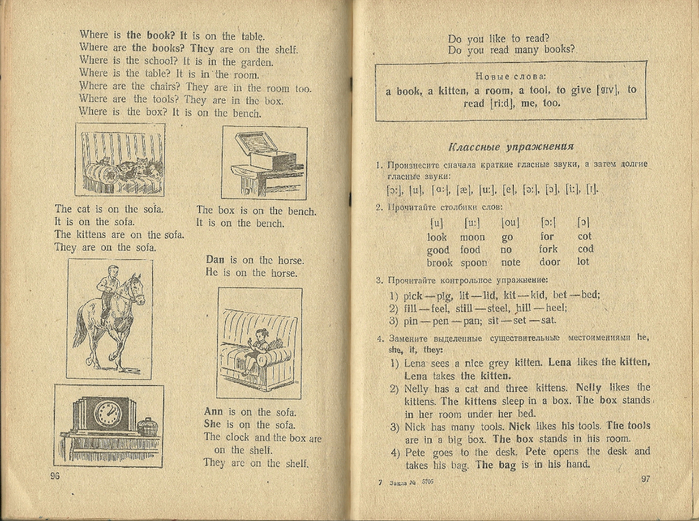 Where is the book? It is on the table.
Where are the books? They are on the shelf.
Where is the school? It is in the garden.
Where is the table? It is in the room.
Where are the chairs? They are in the room too.
Where are the tools? They are in the box.
Where is the box? It is on the bench.
The cat is on the sofa.
It is on the sofa.
The kittens are on the sofa.
They are on the sofa.
The box is on the bench.
It is on the bench.
Dan is on the horse.
He is on the horse.
Ann is on the sofa.
She is on the sofa.
The clock and the box are
on the shelf.
They are on the shelf.
96
Do you like to read?
Do you read many books?
Новые слова:
a book, a kitten, a room, a tool, to give [gɪv], to
read [ri:d], me, too.
Классные упражнения
1. Произнесите сначала краткие гласные звуки, а затем долгие
гласные звуки:
[ɔ:], [u], [ɑ:], [æ], [u:], [e], [ə:], [ɔ], [i:], [ɪ].
2. Прочитайте столбики слов:
[u] [u:] [ou] [ɔ:] [ɔ]
look moon go for cot
good food no fork cod
brook spoon note door lot
3. Прочитайте контрольное упражнение:
1) pick—pig, lit—lid, kit—kid, bet—bed;
2) fill—feel, still—steel, hill—heel;
3) pin—pen—pan; sit—set—sat.
4. Замените выделенные существительные местоимениями he,
she, it, they:
1) Lena sees a nice grey kitten. Lena likes the kitten,
Lena takes the kitten.
2) Nelly has a cat and three kittens. Nelly likes the
kittens. The kittens sleep in a box. The box stands
in her room under her bed.
3) Nick has many tools. Nick likes his tools. The tools
are in a big box. The box stands in his room.
4) Pete goes to the desk. Pete opens the desk and
takes his bag. The bag is in his hand.
7 Заказ №
97